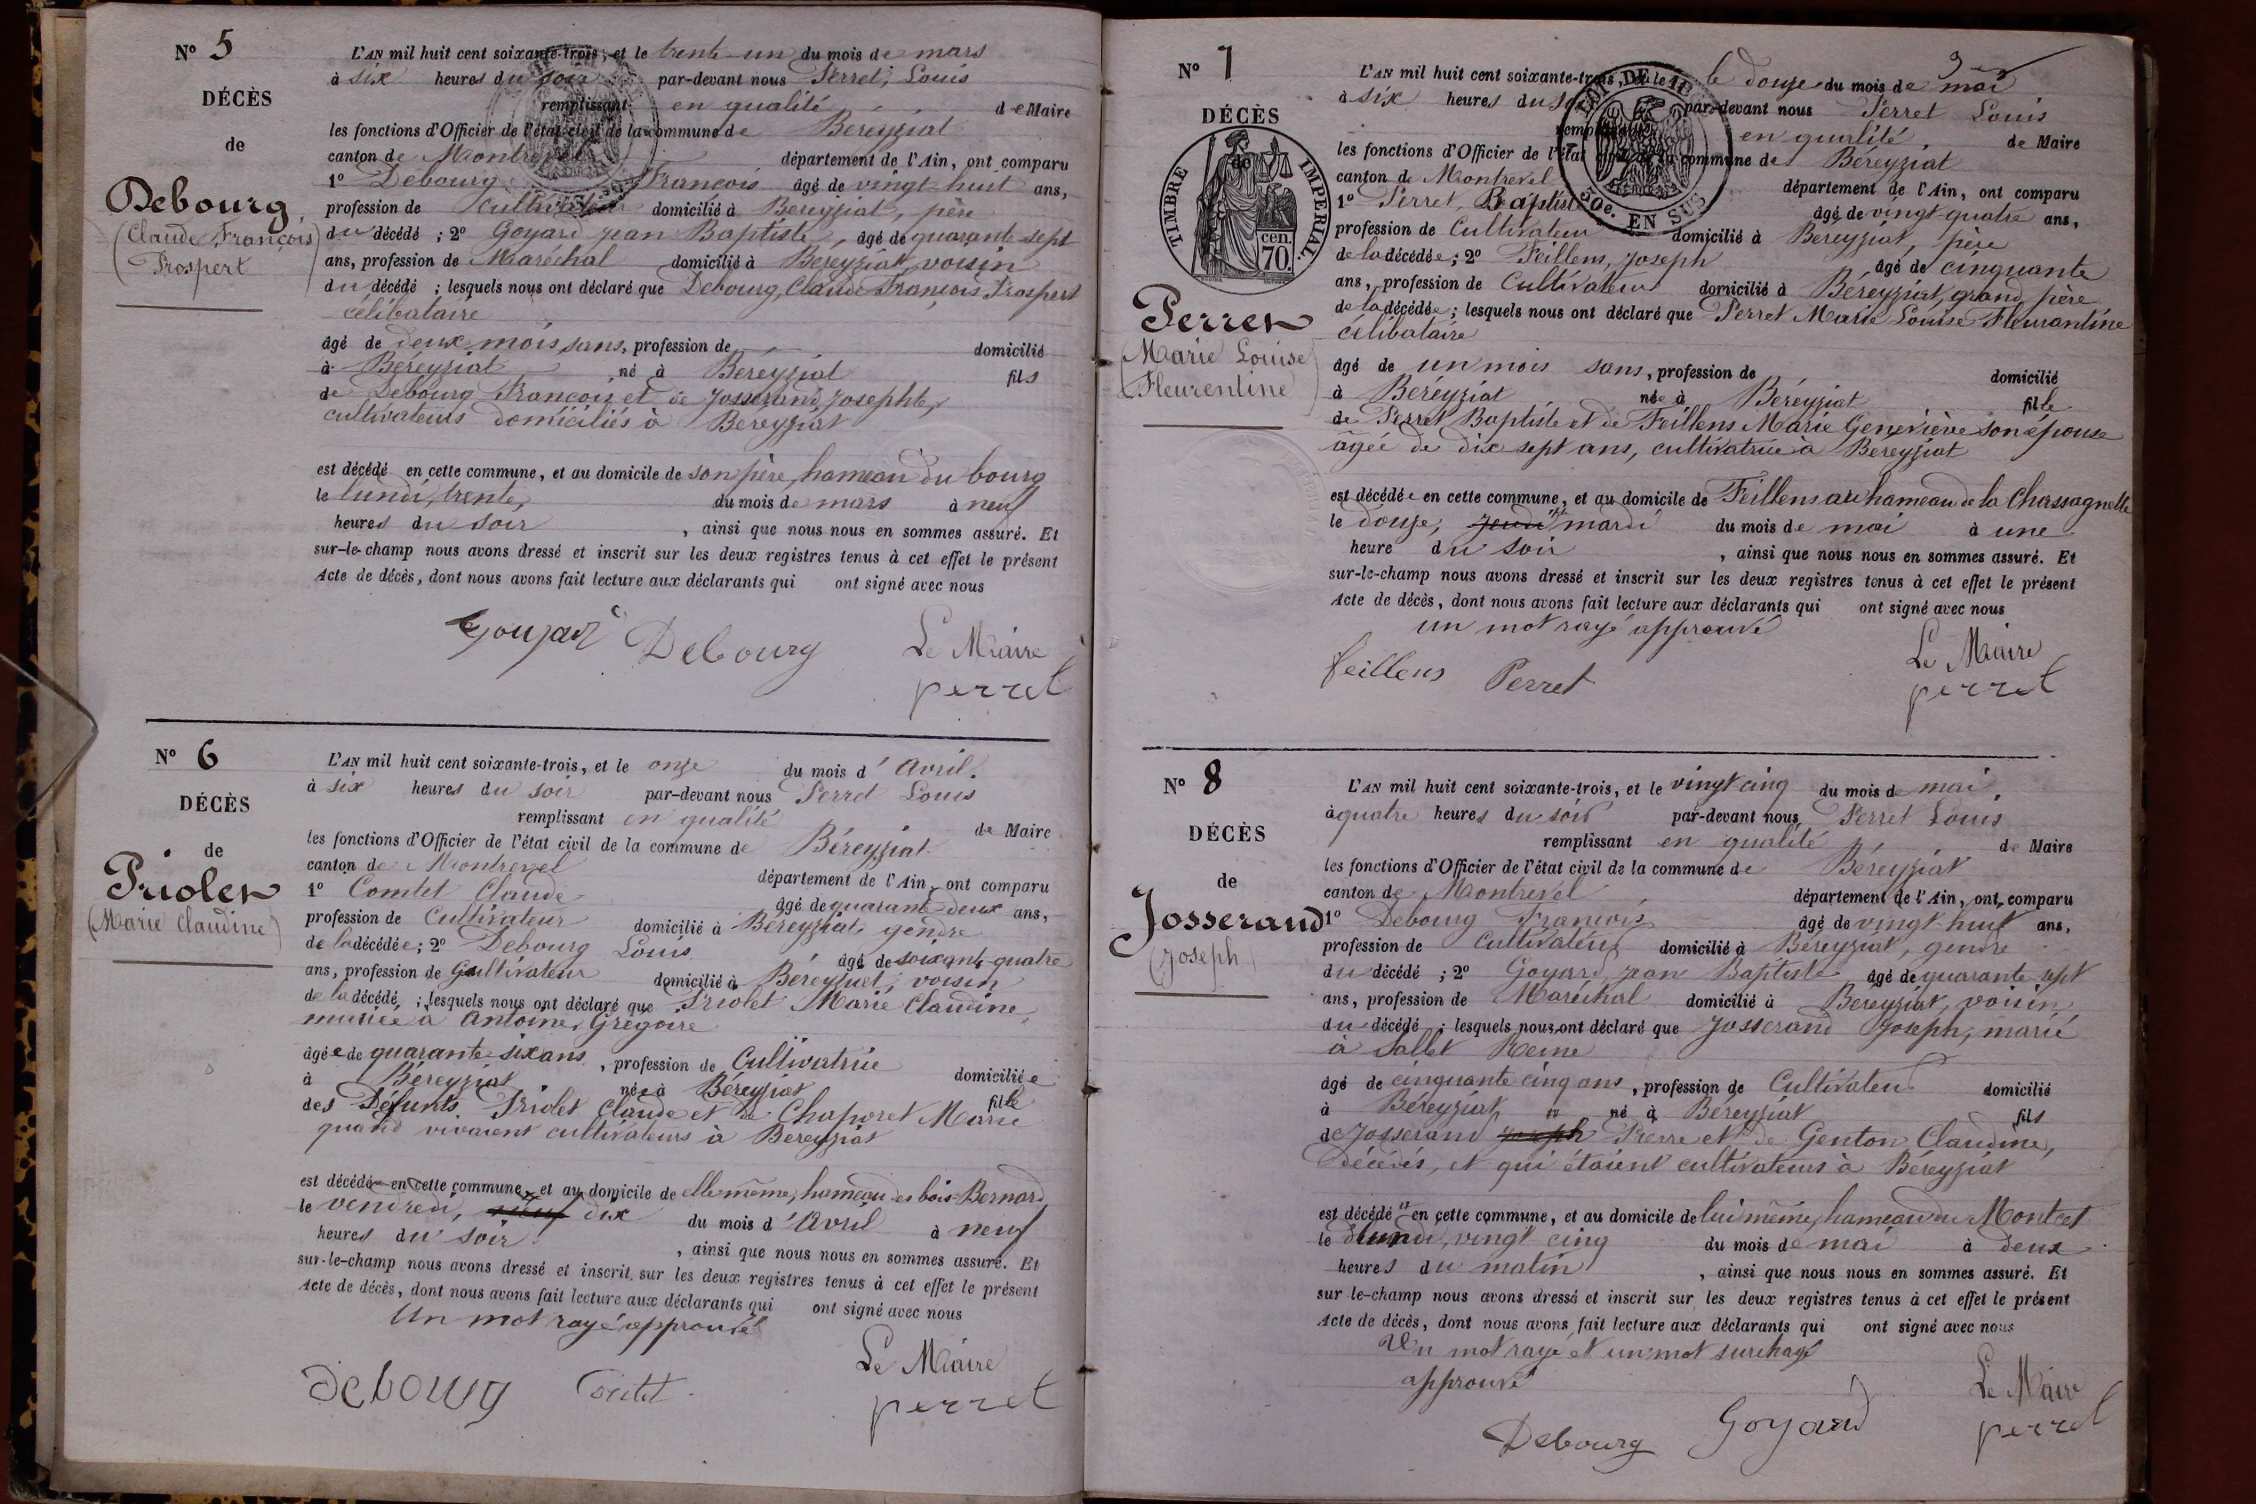 N° 5
DÉCÈS
de
Debourg
(Claude François
Prospert)
L'AN mil huit cent soixante-trois, et le trente-un du mois de mars
à six heures du soir par-devant nous Perret, Louis
remplissant en qualité de Maire
les fonctions d'Officier de l'état civil de la commune de Béreyziat
canton de Montrevel département de l'Ain, ont comparu
1° Debourg François âgé de vingt-huit ans,
profession de cultivateur domicilié à Béreyziat, père
du décédé ; 2° Goyard jean Baptiste, âgé de quarante-sept
ans, profession de Maréchal domicilié à Béreyziat, voisin
du décédé ; lesquels nous ont déclaré que Debourg, Claude François Prospert
célibataire
âgé de deux mois sans, profession de domicilié
à Béreyziat né à Béreyziat fils
de Debourg François et de Josserand, Josephte,
cultivateurs domiciliés à Béreyziat
est décédé en cette commune, et au domicile de son père, hameau du bourg
le lundi, trente, du mois de mars à neuf
heures du soir, ainsi que nous nous en sommes assuré. Et
sur-le-champ nous avons dressé et inscrit sur les deux registres tenus à cet effet le présent
Acte de décès, dont nous avons fait lecture aux déclarants qui ont signé avec nous
Goyard Debourg Le Maire
perret
N° 6
DÉCÈS
de
Priolet
(Marie Claudine)
L'AN mil huit cent soixante-trois, et le onze du mois d'Avril.
à six heures du soir par-devant nous Perret Louis
remplissant en qualité de Maire
les fonctions d'Officier de l'état civil de la commune de Béreyziat
canton de Montrevel département de l'Ain, ont comparu
1° Comtet Claude âgé de quarante-deux ans,
profession de Cultivateur domicilié à Béreyziat, gendre
de la décédée ; 2° Debourg Louis âgé de soixante-quatre
ans, profession de Cultivateur domicilié à Béreyziat, voisin
de la décédé ; lesquels nous ont déclaré que Priolet Marie Claudine,
mariée à Antoine, Grégoire
âgée de quarante-six ans, profession de Cultivatrice domiciliée
à Béreyziat née à Béreyziat fille
des Défunts Priolet Claude et de Chaporet Marie
quand vivaient cultivateurs à Béreyziat
est décédée en cette commune, et au domicile de elle même, hameau des bois-Bernard
le vendredi, neuf dix du mois d'Avril à neuf
heures du soir, ainsi que nous nous en sommes assuré. Et
sur-le-champ nous avons dressé et inscrit sur les deux registres tenus à cet effet le présent
Acte de décès, dont nous avons fait lecture aux déclarants qui ont signé avec nous
Un mot rayé approuvé
Le Maire
Debourg perret
N° 7
DÉCÈS
de
TIMBRE IMPERIAL.
cen.
70.
Perret
(Marie Louise
Fleurentine)
LOI DE
50e. EN SUS
L'AN mil huit cent soixante-trois, et le le douze du mois de mai
à six heures du soir par-devant nous Perret Louis
remplissant en qualité de Maire
les fonctions d'Officier de l'état civil de la commune de Béreyziat
canton de Montrevel département de l'Ain, ont comparu
1° Perret, Baptiste âgé de vingt-quatre ans,
profession de Cultivateur domicilié à Béreyziat, père
de la décédée ; 2° Feillens, Joseph âgé de cinquante
ans, profession de Cultivateur domicilié à Béreyziat, grand père
de la décédée ; lesquels nous ont déclaré que Perret Marie Louise Fleurantine
célibataire
âgé de un mois sans, profession de domicilié
à Béreyziat née à Béreyziat fille
de Perret Baptiste et de Feillens Marie Geneviève son épouse
âgée de dix sept ans, cultivatrice à Béreyziat
est décédée en cette commune, et au domicile de Feillens au hameau de la Chassagnelle
le douze, jeudi mardi du mois de mai à une
heure du soir, ainsi que nous nous en sommes assuré. Et
sur-le-champ nous avons dressé et inscrit sur les deux registres tenus à cet effet le présent
Acte de décès, dont nous avons fait lecture aux déclarants qui ont signé avec nous
un mot rayé approuvé
Le Maire
feillens Perret perret
N° 8
DÉCÈS
de
Josserand
(Joseph)
L'AN mil huit cent soixante-trois, et le vingt cinq du mois de mai.
à quatre heures du soir par-devant nous Perret Louis
remplissant en qualité de Maire
les fonctions d'Officier de l'état civil de la commune de Béreyziat
canton de Montrevel département de l'Ain, ont comparu
1° Debourg François âgé de vingt-huit ans,
profession de Cultivateur domicilié à Béreyziat, gendre
du décédé ; 2° Goyard, jean Baptiste âgé de quarante sept
ans, profession de Maréchal domicilié à Béreyziat, voisin,
du décédé ; lesquels nous ont déclaré que Josserand Joseph, marié
à Sallet Reine
âgé de cinquante cinq ans, profession de Cultivateur domicilié
à Béreyziat né à Béreyziat fils
de Josserand joseph Pierre et de Genton Claudine,
Décédés, et qui étaient cultivateurs à Béreyziat
est décédé en cette commune, et au domicile de lui même, hameau du Montcet
le lundi, vingt cinq du mois de mai à deux
heures du matin, ainsi que nous nous en sommes assuré. Et
sur-le-champ nous avons dressé et inscrit sur les deux registres tenus à cet effet le présent
Acte de décès, dont nous avons fait lecture aux déclarants qui ont signé avec nous
Un mot rayé et un mot surchagé
approuvé
Le Maire
Debourg Goyard perret